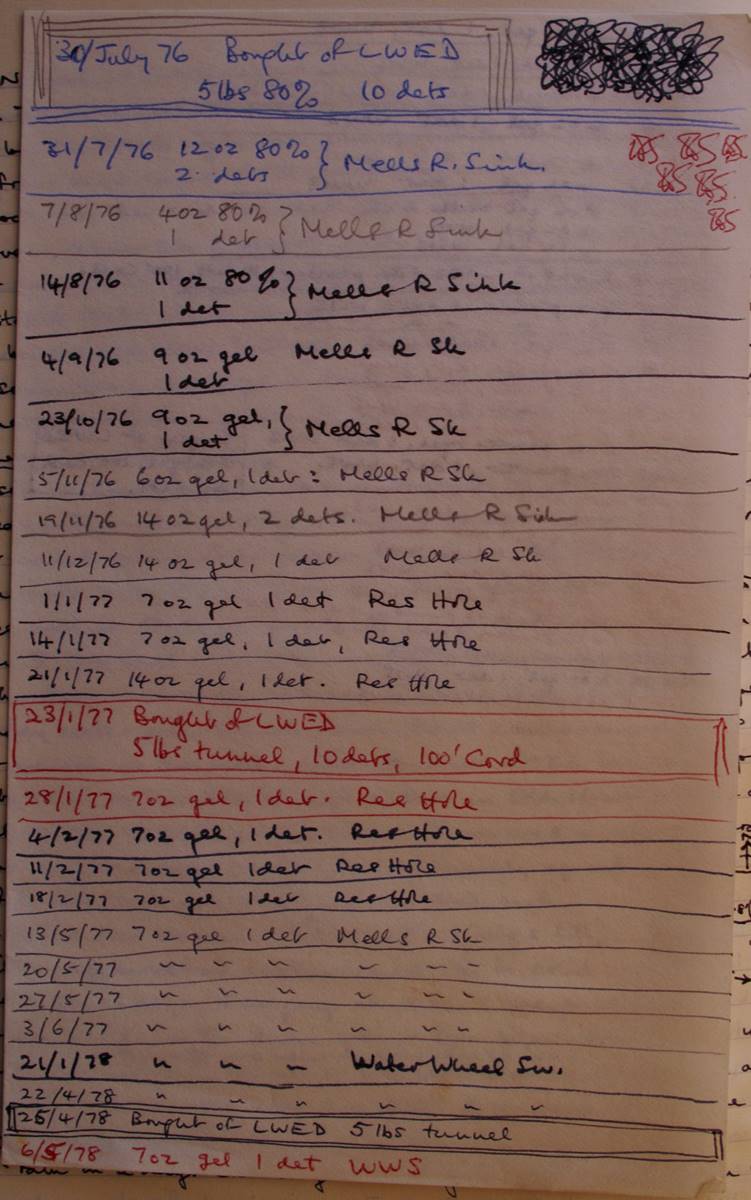 30/July 76 Bought of LWED
5 lbs 80% 10 dets
31/7/76 12 oz 80% } Mells R. Sink.
2 dets
7/8/76 4 oz 80% } Mells R Sink
1 det
14/8/76 11 oz 80% } Mells R Sink
1 det
4/9/76 9 oz gel Mells R Sk
1 det
23/10/76 9 oz gel, } Mells R Sk
1 det
5/11/76 6 oz gel, 1 det : Mells R Sk
19/11/76 14 oz gel, 2 dets. Mells R Sink
11/12/76 14 oz gel, 1 det Mells R Sk
1/1/77 7 oz gel 1 det Res Hole
14/1/77 7 oz gel, 1 det, Res Hole
21/1/77 14 oz gel, 1 det. Res Hole
23/1/77 Bought of LWED
5 lbs tunnel, 10 dets, 100' Cord
28/1/77 7 oz gel, 1 det. Res Hole
4/2/77 7 oz gel, 1 det. Res Hole
11/2/77 7 oz gel 1 det Res Hole
18/2/77 7 oz gel 1 det Res Hole
13/5/77 7 oz gel 1 det Mells R Sk
20/5/77 " " " " " "
27/5/77 " " " " " "
3/6/77 " " " " " "
21/1/78 " " " Water Wheel Sw.
22/4/78 " " " " " "
25/4/78 Bought of LWED 5 lbs tunnel
6/5/78 7 oz gel 1 det WWS